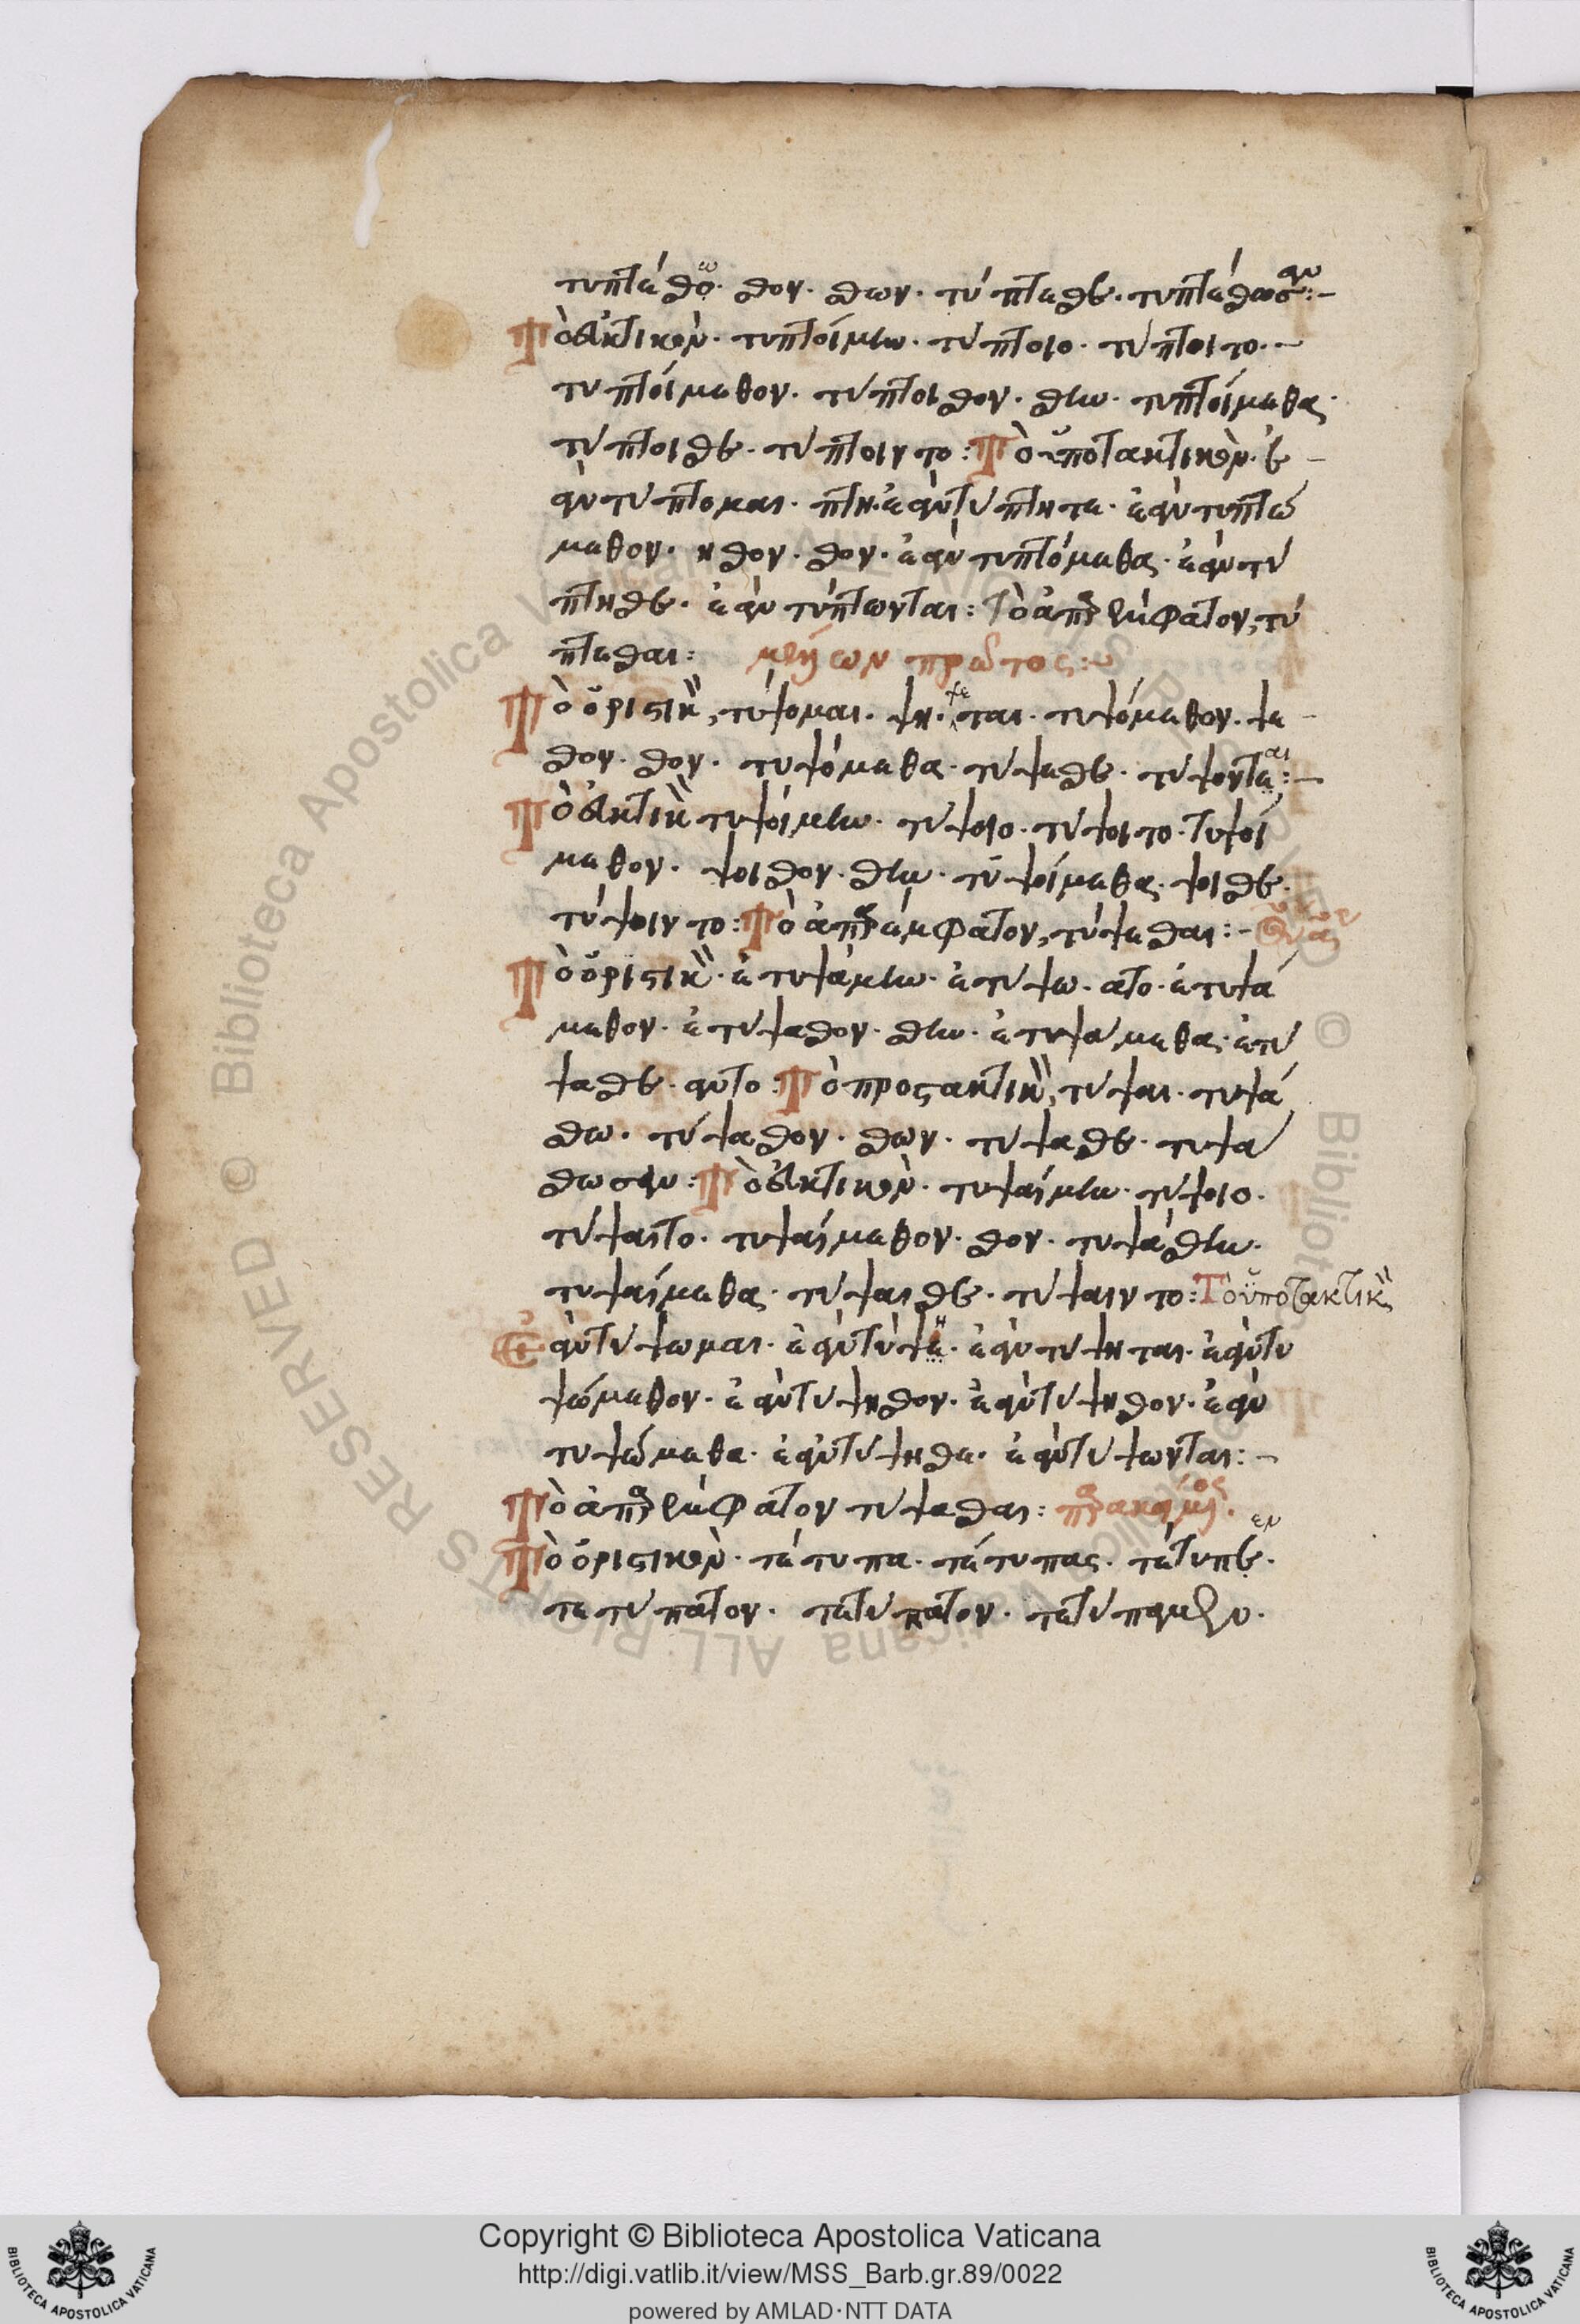 τυπτέσθω. σθον. σθων. τύπτεσθε. τυπτέσθωσαν:-
Τὸ εὐκτικὸν. τυπτοίμην. τύπτοιο. τύπτοιτο.-
τυπτοίμεθον. τύπτοισθον. σθην. τυπτοίμεθα.
τύπτοισθε. τύπτοιντο: Τὸ ὑποτακτικὸν. ἐ-
ὰν τύπτομαι. πτη. ἐὰν τύπτητε. ἐὰν τυπτώ
μεθον. ησθον. σθον. ἐὰν τυπτόμεθα. ἐὰν τύ
πτησθε. ἐὰν τύπτωνται: Τὸ ἀπαρέμφατον, τύ
πτεσθαι: μέλλων πρῶτος:-
Τὸ ὁριστικ, τύψομαι. ψη. ψεται. τυψόμεθον. ψε-
σθον. σθον. τυψόμεθα. τύψεσθε. τύψονται:-
Τὸ εὐκτικ τυψοίμην. τύψοιο. τύψοιτο. τυψοί
μεθον. ψοισθον. σθην. τυψοίμεθα. ψοισθε.
τύψοιντο: Τὸ ἀπαρέμφατον, τύψεσθαι:-
Τὸ ὁριστικ. ἐτυψάμην. ἐτύψω. ατο. ἐτυψά
μεθον. ἐτύψασθον. σθην. ἐτυψάμεθα. ἐτύ
ψασθε. αντο: Τὸ προστακτικ, τύψαι. τυψά
σθω. τύψασθον. σθων. τύψασθε. τυψά
σθωσαν: Τὸ εὐκτικὸν. τυψαίμην. τύψοιο.
τύψαιτο. τυψαίμεθον. σθον. τυψάσθην.
τυψαίμεθα. τύψαισθε. τύψαιντο: Τὸ ὑποτακτικ
Ἐὰν τύψωμαι. ἐὰν τύψη. ἐὰν τύψηται. ἐὰν τυ
ψώμεθον. ἐὰν τύψησθον. ἐὰν τύψησθον. ἐὰν
τυψώμεθα. ἐὰν τύψησθε. ἐὰν τύψωνται:-
Τὸ ἀπαρέμφατον τύψασθαι: παρακείμενος.
Τὸ ὁριστικὸν. τέτυπα. τέτυπας. τέτυπεν.
τετύπατον. τετύπατον. τετύπαμεν.
Copyright © Biblioteca Apostolica Vaticana
http://digi.vatlib.it/view/MSS_Barb.gr.89/0022
powered by AMLAD·NTT DATA